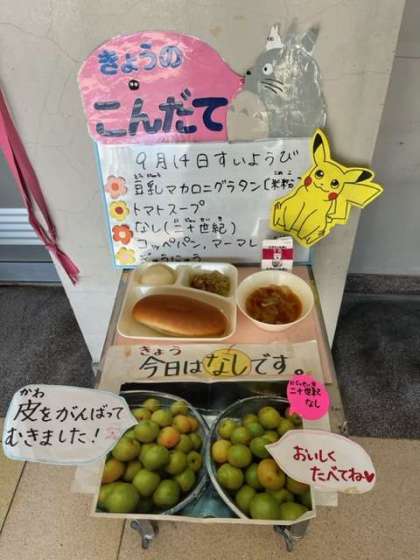 きょうの
こんだて
9月14日すいようび
豆乳マカロニグラタン(米粉)
トマトスープ
なし(二十世紀)
コッペパン、マーマレ
ぎゅうにゅう
きょう
今日はなしです。
二十世紀
なし
かわ
皮をがんばって
むきました!
おいしく
たべてね♥